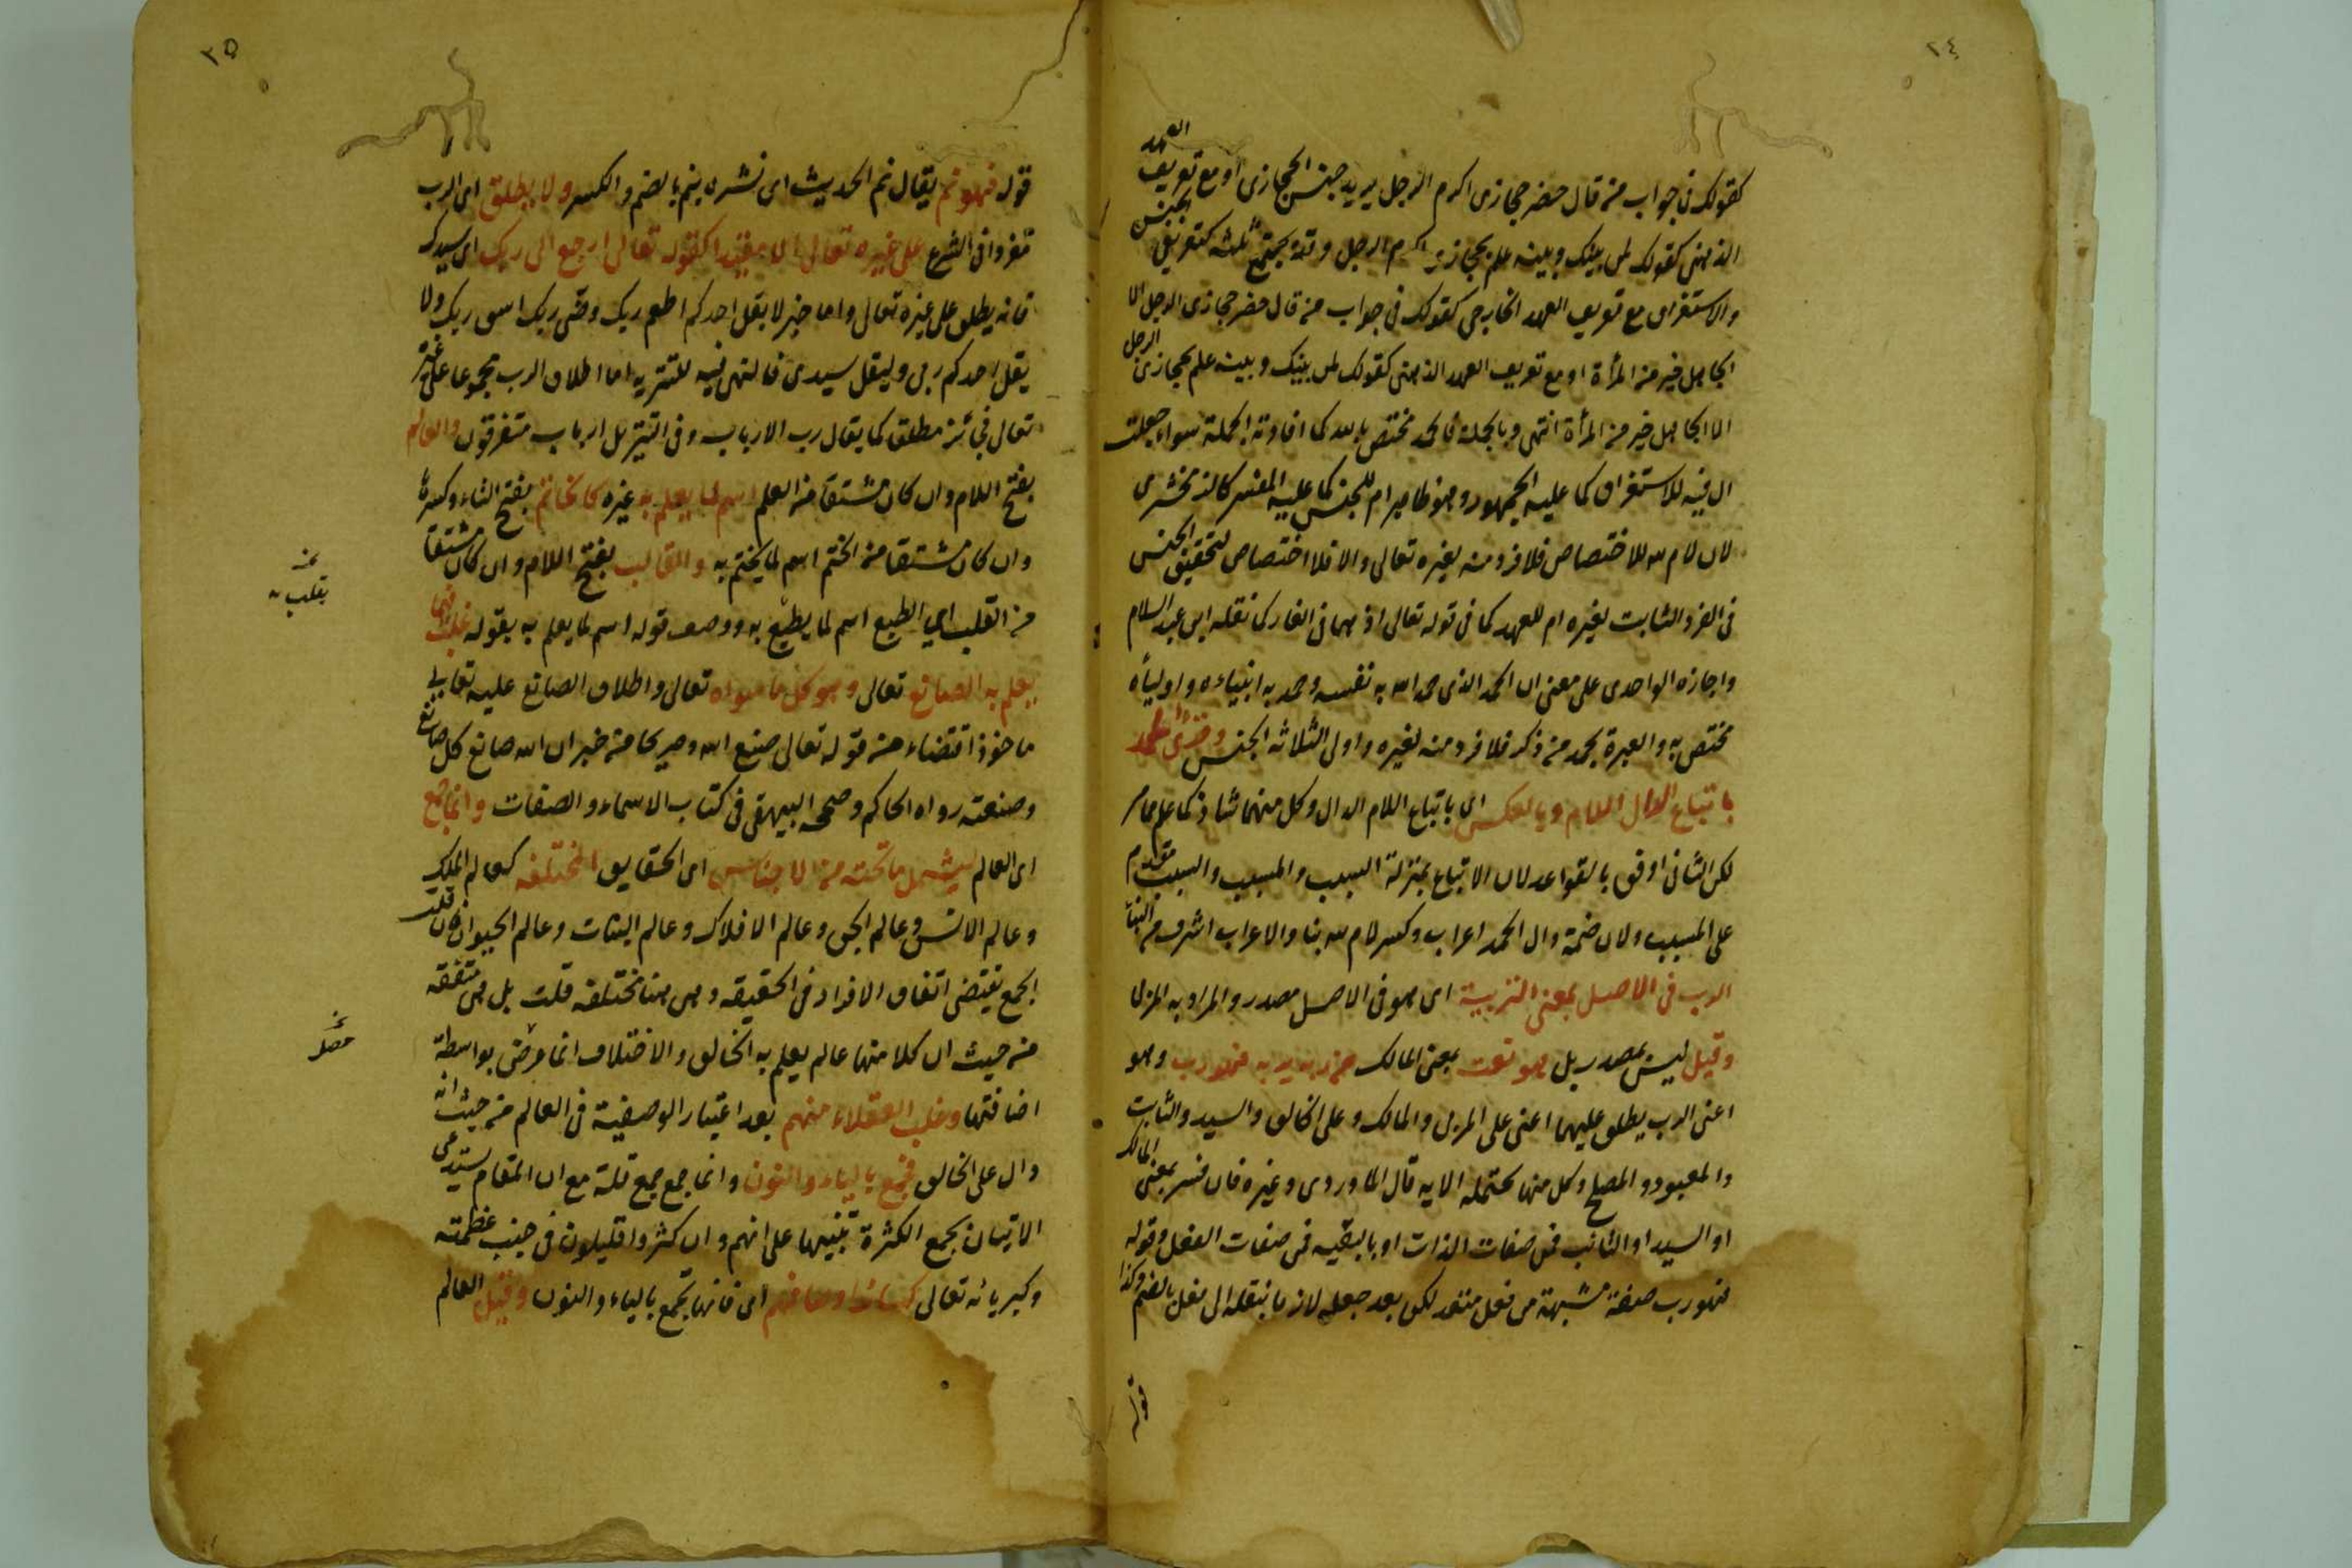 ٢٤
كقولك في جواب من قال حضر حجازى اكرم الرجل يريد جنس الحجازى او مع تعريف العهد
الذهنى كقولك لمن بينك وبينه علم بحجازى اكرم الرجل وقد يجتمع ثلثه كتعريف الجنس
والاستغراق مع تعريف العهد الخارجى كقولك فى جواب من قال حضر حجازى الرجل الا
الجاهل خير من المرأة او مع تعريف العهد الذهنى كقولك لمن بينك وبينه علم بحجازى الرجل
الا الجاهل خير من المرأة انتهى وبالجملة فالحمد مختص بالله كما افادته الجملة سواء جعلت
ال فيه للاستغراق كما عليه الجمهور وهو ظاهر ام للجنس كما عليه المفسر كالزمخشرى
لان لام لله للاختصاص فلا فرد منه لغيره تعالى والا فلا اختصاص لتحقيق الجنس
فى الفرد الثابت لغيره ام للعهد كما فى قوله تعالى اذ هما فى الغار كما نقله ابن عبد السلام
واجازه الواحدى على معنى ان الحمد الذى حمد الله به نفسه وحمد به انبياءه واولياءه
مختص به والعبرة بحمد من ذكر فلا فرد منه لغيره واولى الثلاثه الجنس وقرئ الحمد
باتباع الدال اللام وبالعكس اى باتباع اللام الدال وكل منهما شاذ كما علم مما مر
لكن الثانى اوفق بالقواعد لان الاتباع بمنزلة السبب والمسبب والسبب مقدم
على المسبب ولان ضمة دال الحمد اعراب وكسر لام لله بنا والاعراب اشرف من البناء
الرب فى الاصل بمعنى التربية اى هو فى الاصل مصدر والمراد به المربى
وقيل ليس بمصدر بل هو نعت بمعنى المالك من ربه يربه فهو رب وهو
اعنى الرب يطلق عليهما اعنى على المربى والمالك وعلى الخالق والسيد والثابت
والمعبود والمصلح وكل منها تحتمله الايه قال الماوردى وغيره فان فسر بمعنى المالك
او السيد او الثابت فمن صفات الذات او بالبقيه فمن صفات الفعل وقوله
فهو رب صفة مشبهة من فعل متعد لكن بعد جعله لازما بنقله الى فعل بالضم وكذا
قوله
٢٥
قوله فهو نم يقال نم الحديث اى نشره ينم بالضم والكسر ولا يطلق اى الرب
مفردا فى الشرع على غيره تعالى الا مقيدا كقوله تعالى ارجع الى ربك اى سيدك
فانه يطلق على غيره تعالى واما خبر لا يقل احدكم اطعم ربك وضى ربك اسق ربك ولا
يقل احدكم ربى وليقل سيدى فالنهى فيه للتنزيه اما اطلاق الرب مجموعا على غيره
تعالى فجائز مطلق كما يقال رب الارباب وفى التنزيل ارباب متفرقون والعالم
بفتح اللام وان كان مشتقا من العلم اسم لما يعلم به غيره كالخاتم بفتح التاء وكسرها
وان كان مشتقا من الختم اسم لما يختم به والقالب بفتح اللام وان كان مشتقا
من القلب اى الطبع اسم لما يطبع به ووصف قوله اسم لما يعلم به بقوله غلب فيما
يعلم به الصانع تعالى وهو كل ما سواه تعالى واطلاق الصانع عليه تعالى
ماخوذ اقتضاء من قوله تعالى صنع الله وصريحا من خبر ان الله صانع كل صانع
وصنعته رواه الحاكم وصححه البيهقى فى كتاب الاسماء والصفات وانما جمع
اى العالم ليشمل ما تحته من الاجناس اى الحقايق المختلفه كعالم الملك
وعالم الانس وعالم الجن وعالم الافلاك وعالم النبات وعالم الحيوان فان قلت
الجمع يقتضى اتفاق الافراد فى الحقيقه وهى هنا مختلفه قلت بل هى متفقه
من حيث ان كلا منها عالم يعلم به الخالق والاختلاف انما عرض بواسطة
اضافتها وغلب العقلاء منهم بعد اعتبار الوصفية فى العالم من حيث انه
دال على الخالق فجمع بالياء والنون وانما جمع جمع قلة مع ان المقام يستدعى
الاتيان بجمع الكثرة تنبيها على انهم وان كثروا قليلون فى جنب عظمته
وكبريائه تعالى كسائر اوصافهم اى فانها تجمع بالياء والنون وقيل العالم
يقلب